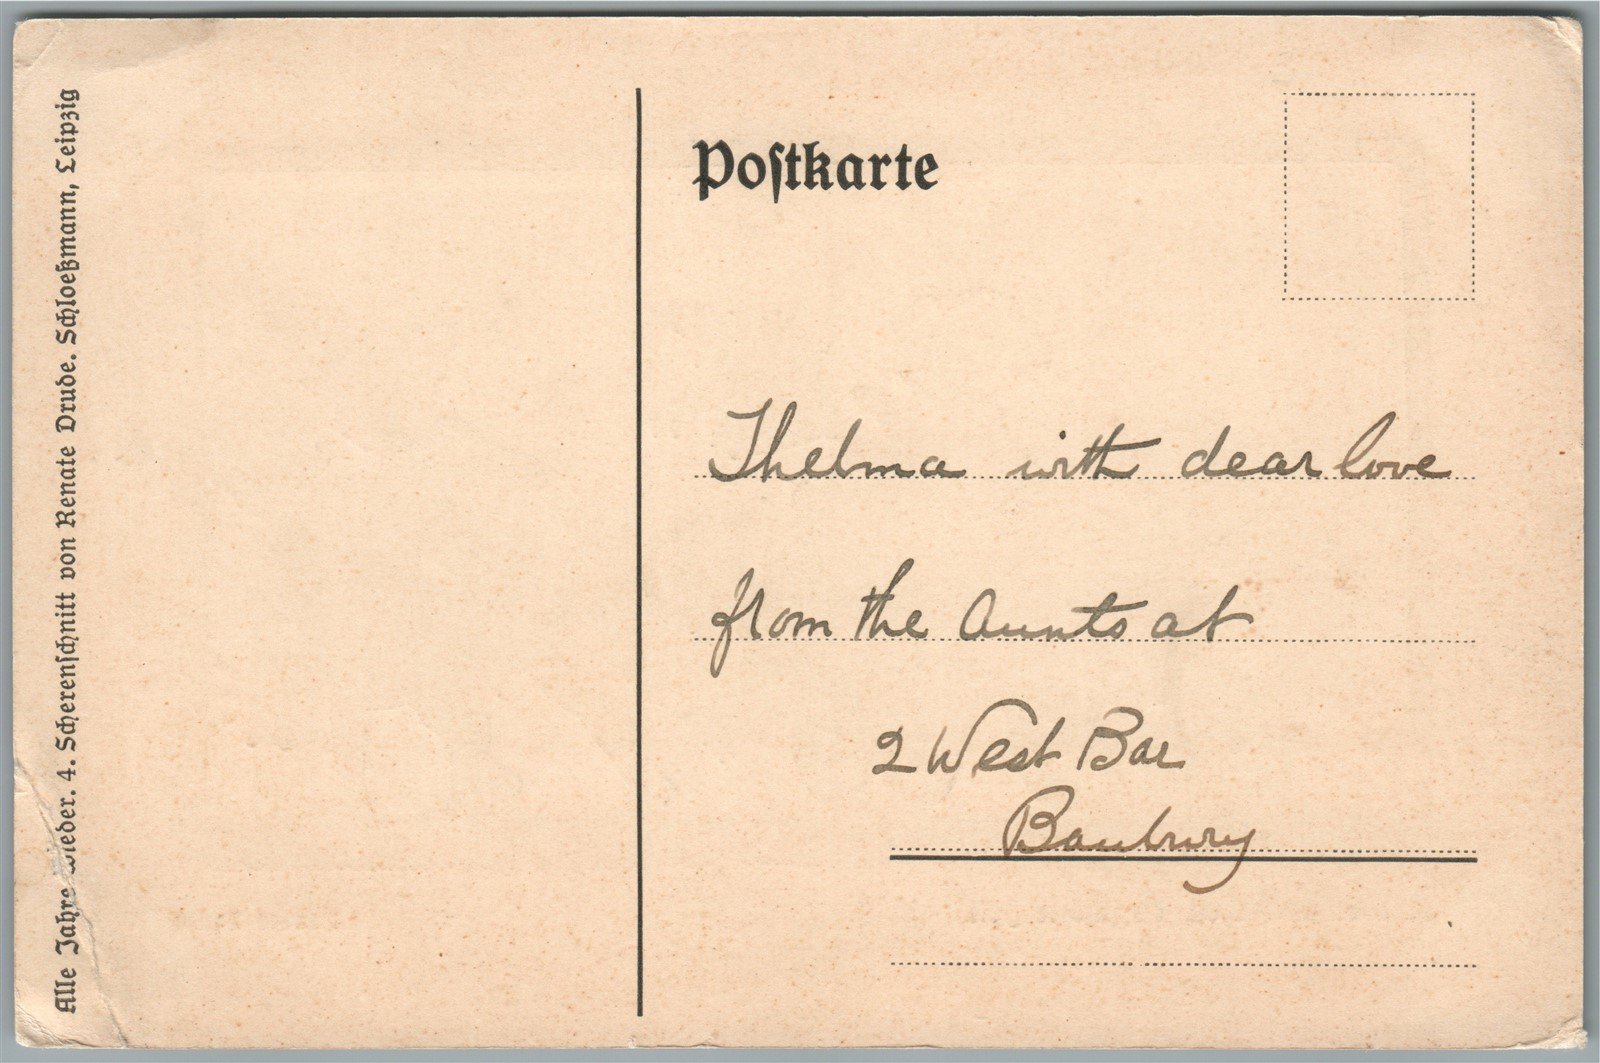 Alle Jahre Wieder. 4. Scherenſchnitt von Renate Drude. Schloeßmann, Leipzig
Poſtkarte
Thelma with dear love
from the Aunts at
2 West Bar
Banbury